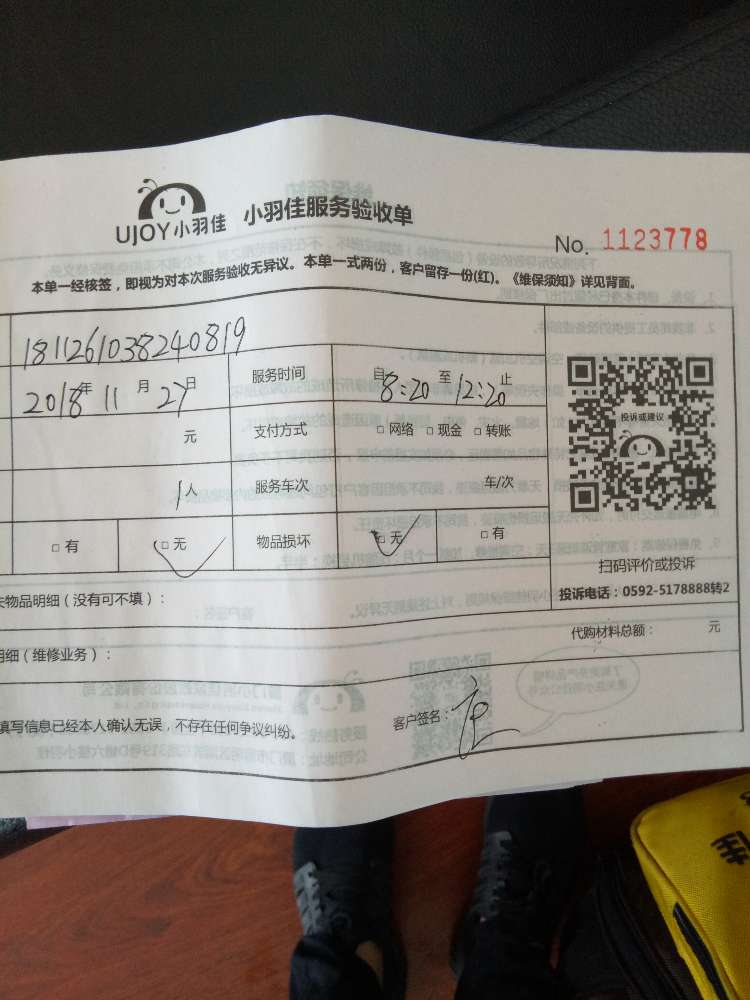 UJOY小羽佳 小羽佳服务验收单
No. 1123778
本单一经核签，即视为对本次服务验收无异议。本单一式两份，客户留存一份(红)。《维保须知》详见背面。
1811261038240819
2018年 11 月 27日 服务时间 自8:20至12:20止
元 支付方式 □ 网络 □ 现金 □ 转账
1人 服务车次 车/次
□ 有 □ 无 物品损坏 □ 无 □ 有
投诉或建议
扫码评价或投诉
投诉电话：0592-5178888转2
物品明细（没有可不填）：
代购材料总额： 元
明细（维修业务）：
填写信息已经本人确认无误，不存在任何争议纠纷。 客户签名：